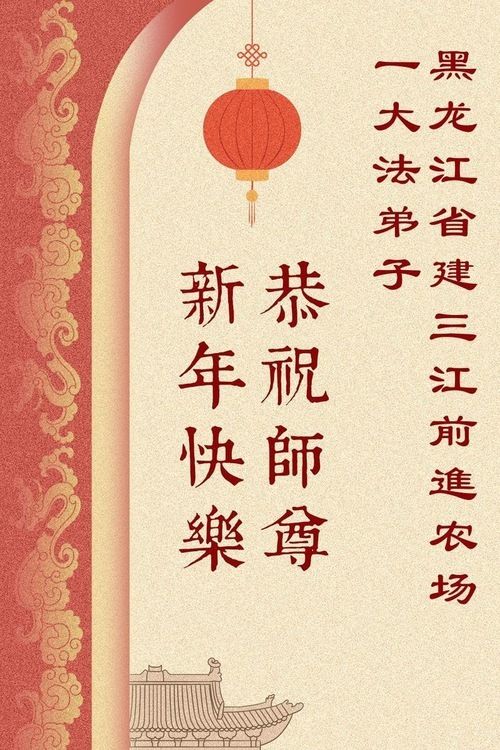 黑龙江省建三江前進农场
一大法弟子
恭祝師尊
新年快樂